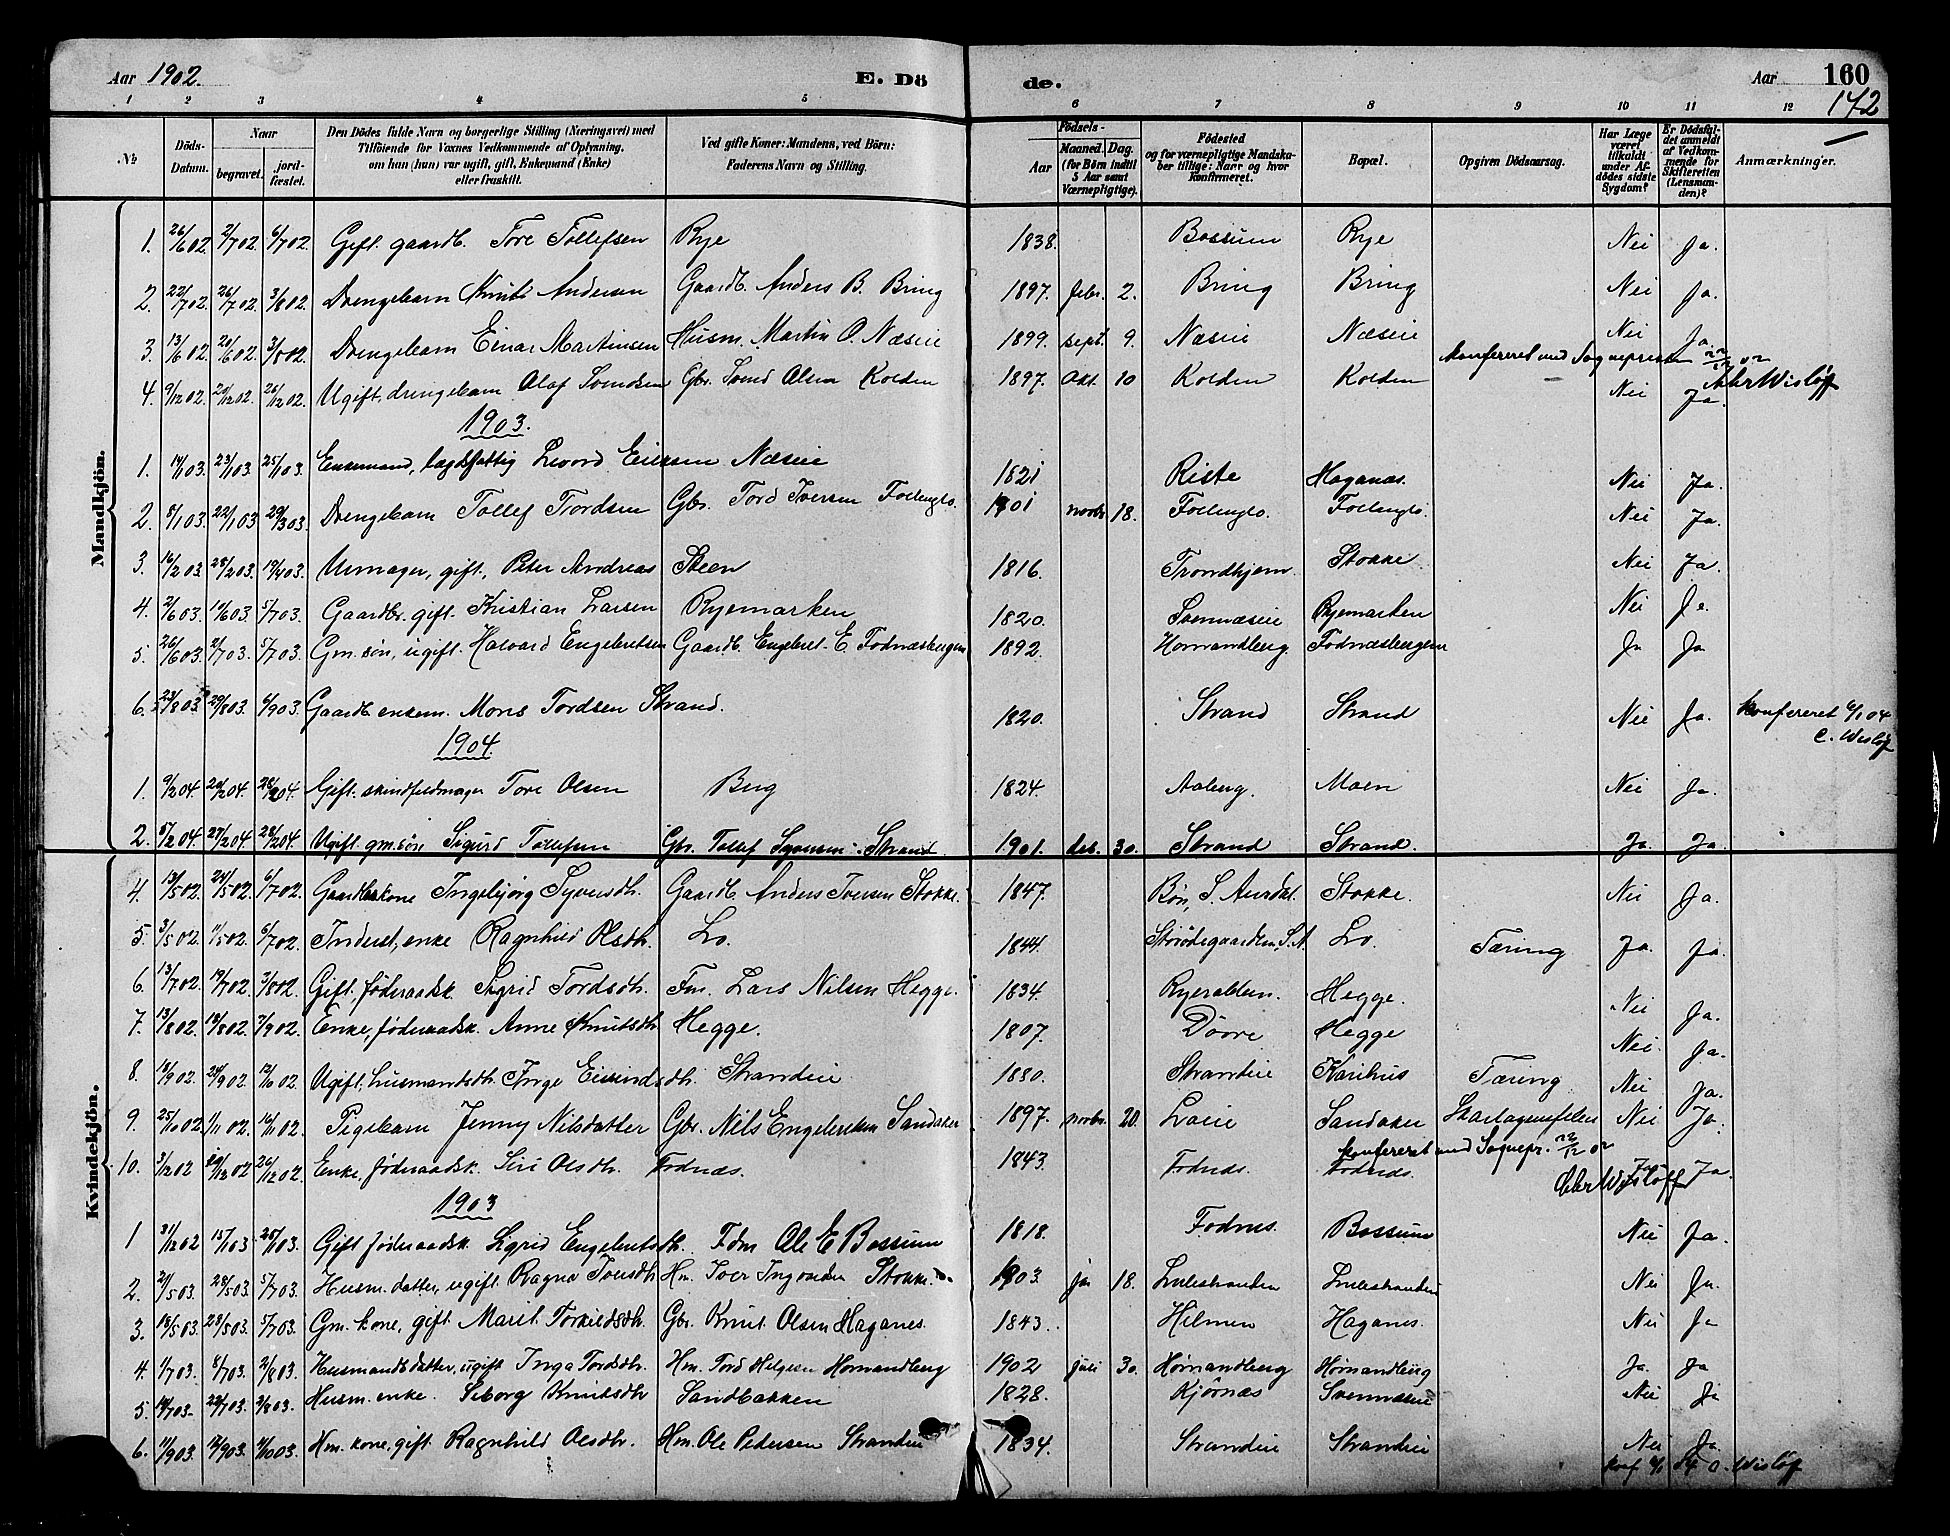 Aar 1902. E. Dö de. Aar 160
172
1 2 3 4 5 6 7 8 9 10 11 12
№ Döds-Datum. Naar begravet. jord-fæstet. Den Dödes fulde Navn og borgerlige Stilling (Næringsvei) med Tilföiende for Voxnes Vedkommende af Oplysning, om han (hun) var ugift, gift, Enkemand (Enke) eller fraskilt. Ved gifte Koner: Mandens, ved Börn: Faderens Navn og Stilling. Födsels- Aar Maaned. Dag. (for Börn indtil 5 Aar samt Værnepligtige). Födested og for værnepligtige Mandska-ber tillige: Naar og hvor konfirmeret. Bopæl. Opgiven Dödsaarsag. Har Læge været tilkaldt under Af-dödes sidste Sygdom? Er Dödsfal-det anmeldt af Vedkom-mende for Skifteretten (Lensman-den)? Anmærkninger.
Mandkjön.
1. 26/6 02. 2/7 02. 6/7 02. Gift. gaardb. Tore Tollefsen Rye 1838. Bossum Rye Nei Ja.
2. 22/7 02. 26/7 02. 3/8 02. Drengebarn Knut Andersen Gaardb. Anders B. Bring 1897. febr. 2. Bring Bring Nei Ja.
3. 13/6 02. 20/6 02. 3/8 02. Drengebarn Einar Martinsen Husm. Martin O. Næseie 1899. sept. 9. Næseie Næseie Nei Ja.
konfereret med Sognepresten 22/12 02
4. 9/12 02. 20/12 02. 26/12 02. Ugift, drengebarn Olaf Svendsen Gbr. Svend Olsen Kolden 1897. Okt. 10 Kolden Kolden Nei Ja. Wisløff
1903.
1. 14/1 03. 23/1 03. 25/1 03. Enkemand, lægdsfattig Levord Eriksen Næseie 1821 Riste Haganæs. Nei Ja.
2. 8/1 03. 22/1 03. 29/3 03. Drengebarn Tollef Tordsen Gbr. Tord Iversen Follinglo. 1901 novbr 18. Follinglo. Follinglo. Nei Ja.
3. 16/2 03. 28/2 03. 19/4 03. Urmager, gift, Peter Andreas Steen 1816. Trondhjem. Stokke Nei Ja.
4. 2/6 03. 10/6 03. 5/7 03. Gaardbr. gift. Kristian Larsen Ryemarken 1820. Svennæseie Ryemarken Nei Ja.
5. 26/6 03. 2/7 03. 5/7 03. Gm. søn, ugift. Halvard Engebretsen Gaardb. Engebret E. Fodnæsbergene 1892. Hornandberg Fodnæsbergene Ja Ja
6. 23/8 03. 29/8 03. 6/9 03. Gaardb. enkem. Mons Tordsen Strand. 1820. Strand Strand Nei Ja. konfereret 6/1 04
C. Wisløff
1904.
1. 9/2 04. 20/2 04. 28/2 04. Gift. skindfeldmager Tore Olsen Berg 1824. Aaberg. Moen Nei Ja.
2. 5/2 04. 27/2 04. 28/2 04. Ugift gm. søn Sigurd Tollefsen Gbr. Tollef Syversen Strand. 1901. des. 30. Strand Strand. Ja. Ja.
Kvindekjön.
4. 13/5 02. 24/5 02. 6/7 02. Gaardbkone Ingebjørg Syversdtr. Gaardb. Anders Iversen Stokke. 1847. Bøn, S. Aurdal. Stokke. Nei Ja.
5. 3/5 02. 11/5 02. 6/7 02. Inderst, enke Ragnhild Olsdtr. Lo. 1844. S. A. Lo. Tæring Ja. Ja.
6. 13/7 02. 19/7 02. 3/8 02. Gift. føderaadsk. Sigrid Tordsdtr. Fm. Lars Nilsen Hegge. 1834. Hegge. Nei Ja.
7. 13/8 02. 18/8 02. 7/9 02. Enke, føderaadsk. Anne Knutsdtr Hegge. 1807. Døvre Hegge Nei. Ja.
8. 18/9 02. 24/9 02. 12/10 02. Ugift, husmandsdtr. Inge Eivindsdtr. Strandeie 1880. Strandeie Karihus Tæring Nei Ja.
9. 25/10 02. 1/11 02. 16/11 02. Pigebarn Jenny Nilsdatter Gbr. Nils Engebretsen Sandaker 1897. novbr. 20. Loeie Sandaker Skarlagensfeber Nei Ja.
konfereret med Sognepr. 22/12 02
10. 3/12 02 20/12 02 26/12 02. Enke, føderaadsk. Siri Olsdtr. Fodnæs. 1843. Fodnæs. Fodnæs. Ja Ja.
Wisløff
1903
1 31/12 02 15/1 03. 25/1 03. Gift føderaadsk. Sigrid Engebretsdtr. Fdm Ole E Bossum 1818. Fodnes. Bossum Nei Ja.
2. 21/5 03. 28/5 03. 5/7 03. Husm. datter, ugift. Ragna Iversdtr Hm. Iver Ingvarden Stokke. 1903. ja 18. Lulestranden Lulestranden Nei Ja.
3. 18/5 03. 28/5 03. 5/7 03. Gm. kone, gift Marit Torkildsdtr. Gbr. Knut Olsen Haganes. 1843. Hilmen Haganes. Nei Ja
4. 1/7 03. 8/7 03. 2/8 03. Husmandsdatter, ugift Inga Tordsdtr. Hm. Tord Helgesen Hornandberg 1902 juli 30. Hørnandberg Hørnandberg Ja. Ja
5. 14/7 03. 22/7 03. 2/8 03. Husm. enke. Siborg Knutsdtr Sandbakken 1828. Kjørnæs Svennæseie Nei Ja
6. 11/9 03. 17/9 03. 4/10 03. Hm. kone, gift. Ragnhild Olsdtr. Hm. Ole Pedersen Strandeie 1834. Strandeie Strandeie Nei Ja.
konf 6/1 04 C. Wisløff